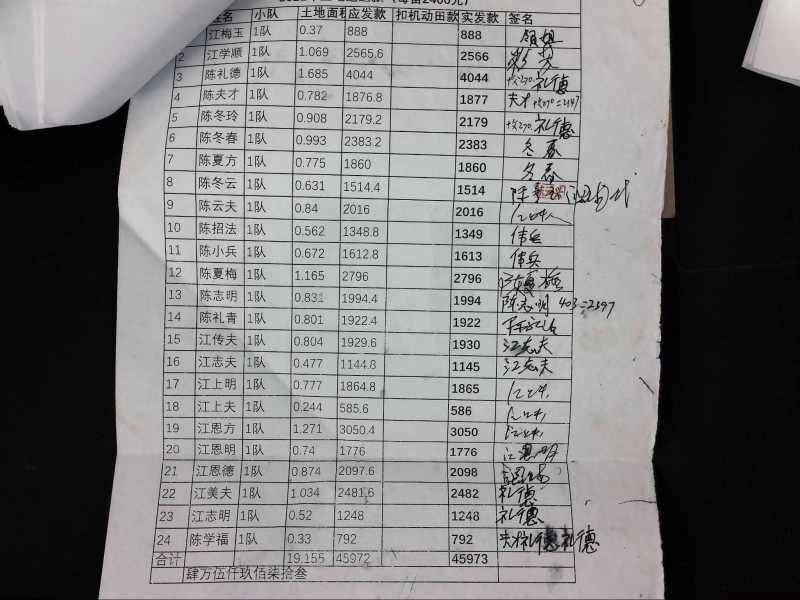 姓名 小队 土地面积 应发款 扣机动田款 实发款 签名
江梅玉 1队 0.37 888 888
2 江学顺 1队 1.069 2565.6 2566
3 陈礼德 1队 1.685 4044 4044 礼德
4 陈夫才 1队 0.782 1876.8 1877 夫才
5 陈冬玲 1队 0.908 2179.2 2179 礼德
6 陈冬春 1队 0.993 2383.2 2383 冬春
7 陈夏方 1队 0.775 1860 1860 冬春
8 陈冬云 1队 0.631 1514.4 1514 陈
9 陈云夫 1队 0.84 2016 2016
10 陈招法 1队 0.562 1348.8 1349 伟兵
11 陈小兵 1队 0.672 1612.8 1613 伟兵
12 陈夏梅 1队 1.165 2796 2796
13 陈志明 1队 0.831 1994.4 1994 陈志明 403=2397
14 陈礼青 1队 0.801 1922.4 1922
15 江传夫 1队 0.804 1929.6 1930 江志夫
16 江志夫 1队 0.477 1144.8 1145 江志夫
17 江上明 1队 0.777 1864.8 1865
18 江上夫 1队 0.244 585.6 586
19 江恩方 1队 1.271 3050.4 3050
20 江恩明 1队 0.74 1776 1776 江恩明
21 江恩德 1队 0.874 2097.6 2098
22 江美夫 1队 1.034 2481.6 2482 礼德
23 江志明 1队 0.52 1248 1248 礼德
24 陈学福 1队 0.33 792 792 夫才礼德 礼德
合计 19.155 45972 45973
肆万伍仟玖佰柒拾叁